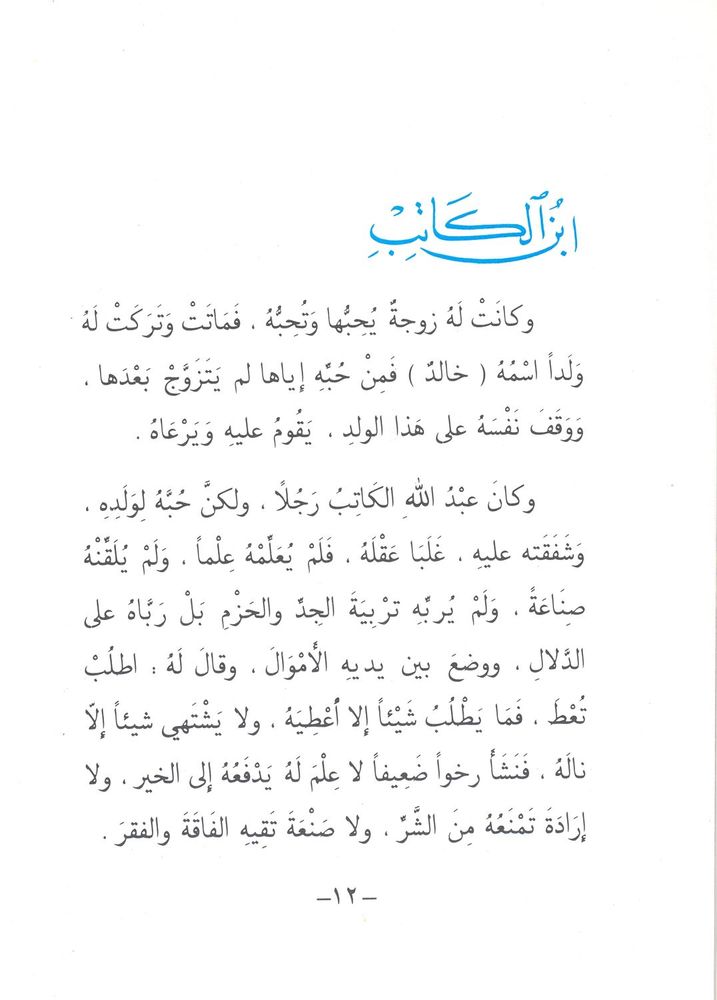 ابْنُ ٱلْكَاتِبِ
وكانَتْ لَهُ زوجةٌ يُحِبُّها وَتُحِبُّهُ ، فَمَاتَتْ وَتَرَكَتْ لَهُ
وَلَداً اسْمُهُ ( خالدٌ ) فَمِنْ حُبِّهِ إياها لم يَتَزَوَّجْ بَعْدَها ،
وَوَقَفَ نَفْسَهُ على هَذا الولدِ ، يَقُومُ عليهِ وَيَرْعَاهُ .
وكانَ عبْدُ اللهِ الكَاتِبُ رَجُلًا ، ولكنَّ حُبَّهُ لِوَلَدِهِ ،
وَشَفَقَته عليهِ ، غَلَبَا عَقْلَهُ ، فَلَمْ يُعَلِّمْهُ عِلْماً ، وَلَمْ يُلَقِّنْهُ
صِنَاعَةً ، وَلَمْ يُربِّهِ تربِيَةَ الجِدِّ والحَزْمِ بَلْ رَبَّاهُ على
الدَّلالِ ، ووضعَ بين يديهِ الأَمْوَالَ ، وقالَ لَهُ : اطلُبْ
تُعْطَ ، فَمَا يَطْلُبُ شَيْئاً إلا أُعْطِيَهُ ، ولا يَشْتَهي شيئاً إلّا
نالَهُ ، فَنَشَأَ رخواً ضَعِيفاً لا عِلْمَ لَهُ يَدْفَعُهُ إلى الخير ، ولا
إرَادَةَ تَمْنَعُهُ مِنَ الشَّرِّ ، ولا صَنْعَةَ تَقِيهِ الفَاقَةَ والفقرَ .
–١٢–